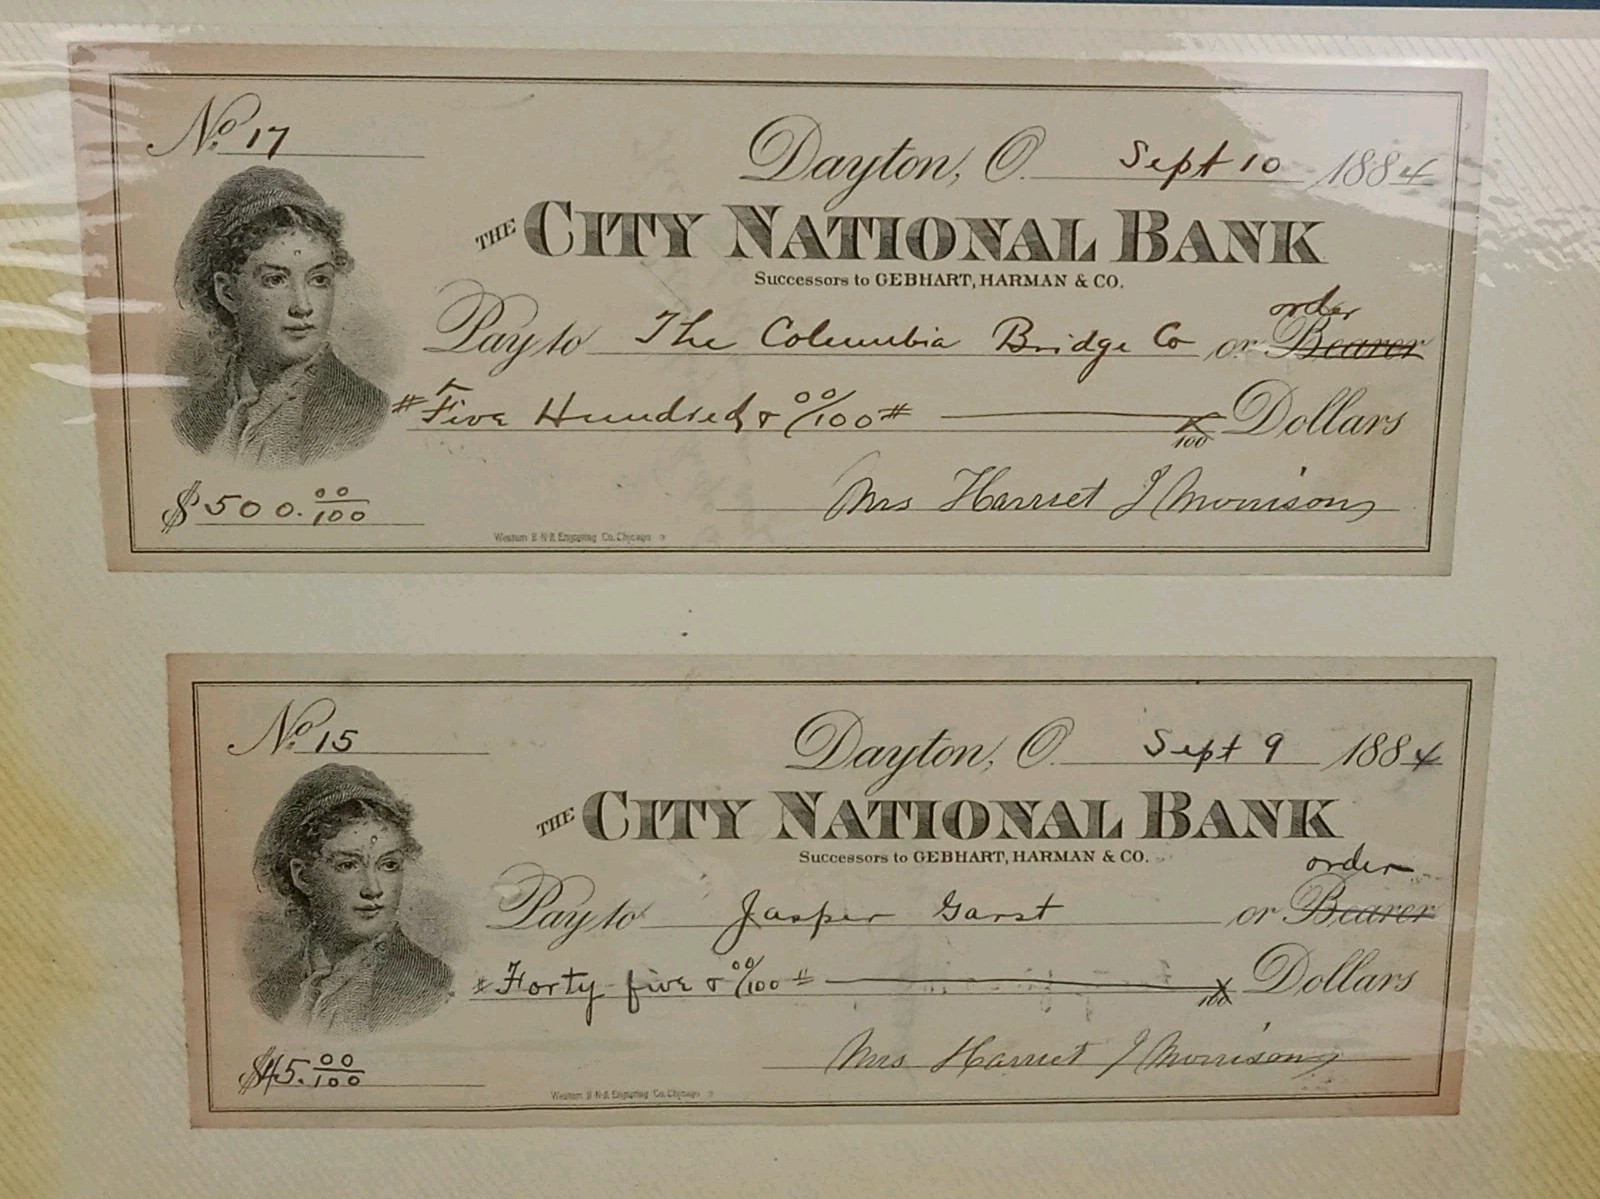 No. 17
Dayton, O. Sept 10 1884
THE CITY NATIONAL BANK
Successors to GEBHART, HARMAN & CO.
order
Pay to The Columbia Bridge Co or Bearer
# Five Hundred & 00/100 # X/100 Dollars
Mrs Harriet J Morrison
$500.00/100
Western B.N.& Engraving Co. Chicago
No. 15
Dayton, O. Sept 9 1884
THE CITY NATIONAL BANK
Successors to GEBHART, HARMAN & CO.
order
Pay to Jasper Garst or Bearer
# Forty-five & 00/100 # X/100 Dollars
Mrs Harriet J Morrison
$45.00/100
Western B.N.& Engraving Co. Chicago